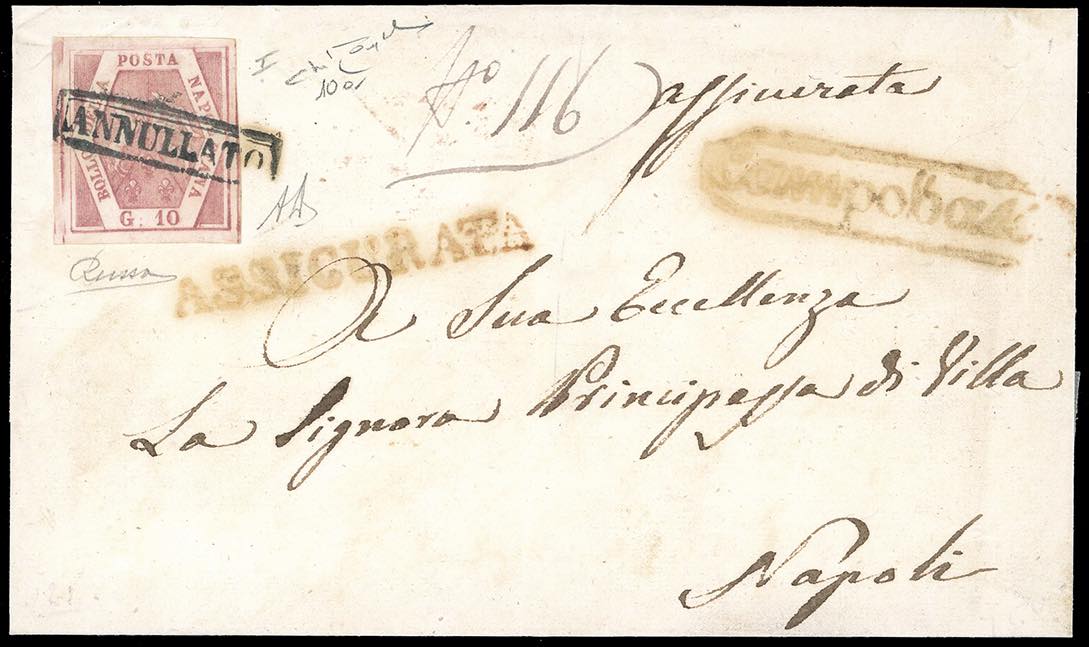 BOLLO POSTA NAPOLETANA
G. 10
ANNULLATO
I
100.
No. 116
assicurata
Campobasso
ASSICURATA
AD
A Sua Eccellenza
La Signora Principessa di Villa
Napoli